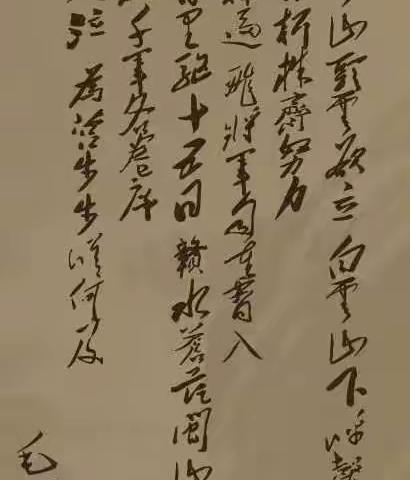 山頭雲欲立 白雲山下呼聲
朽株齊努力
逼 飛將軍自重霄入
里驅十五日 贛水蒼茫閩山
千軍如卷席
泣 為營步步嗟何及
毛